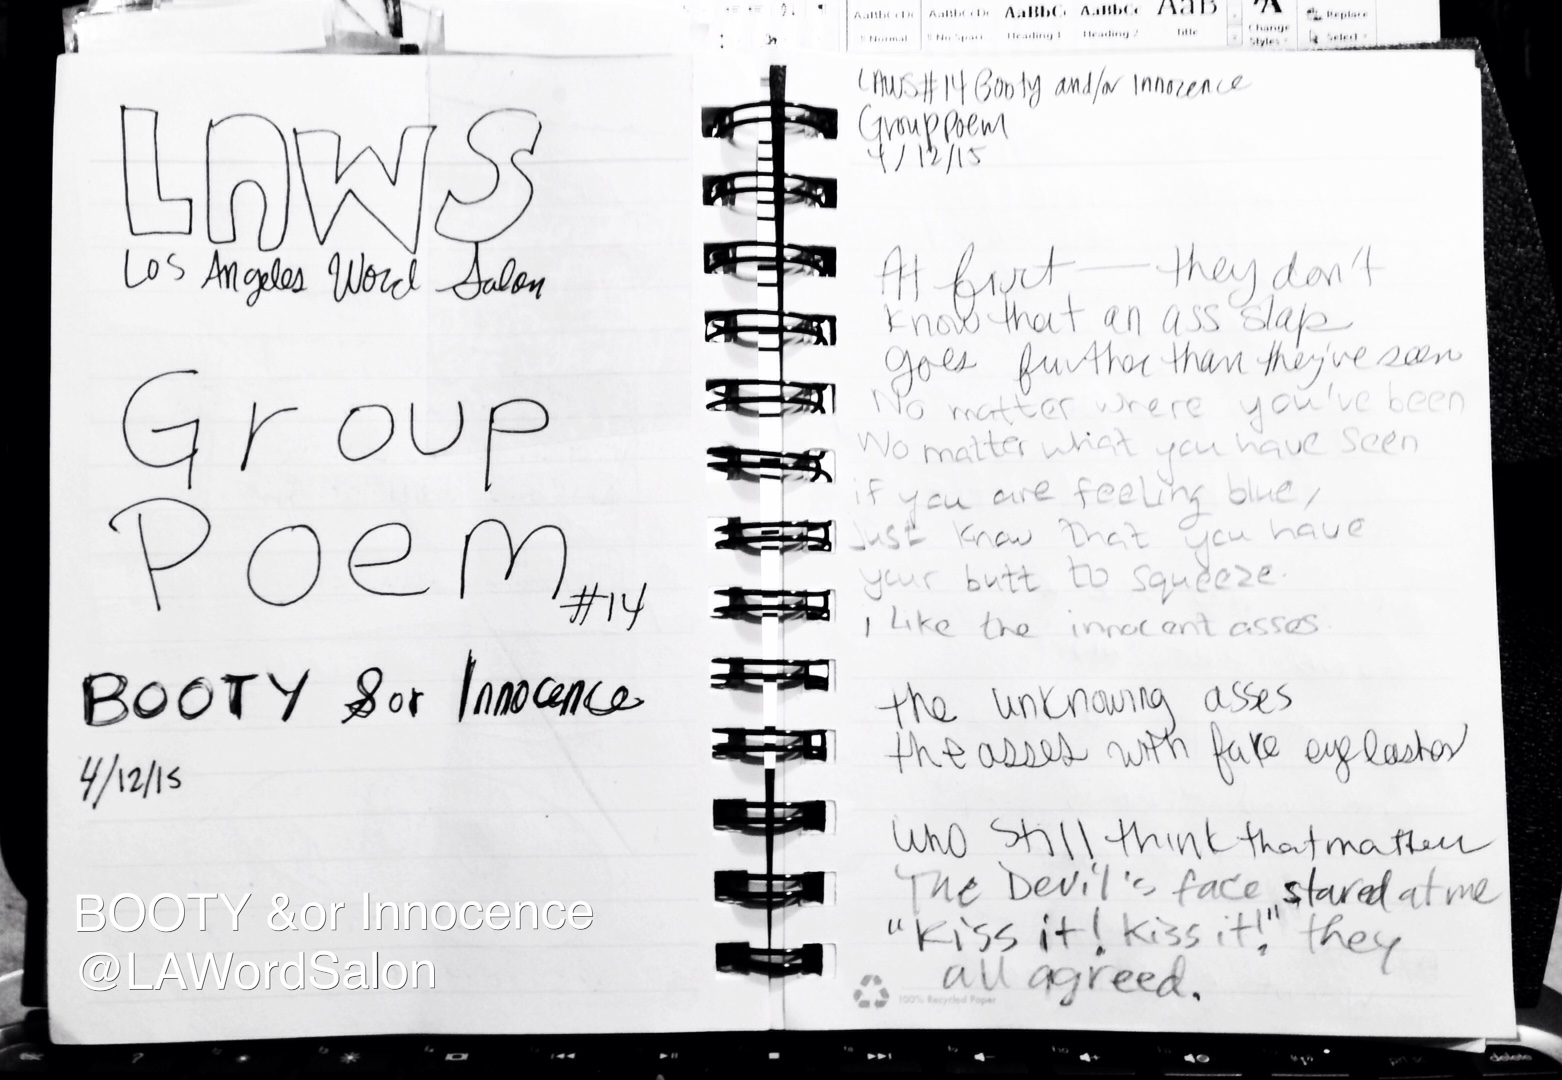 AaBbCcDc AaBbCcDc AaBbCc AaBbCc AaB
¶ Normal ¶ No Spaci Heading 1 Heading 2 Title Change Styles Replace Select
LAWS
Los Angeles Word Salon
Group
Poem #14
BOOTY &or Innocence
4/12/15
BOOTY &or Innocence
@LAWordSalon
LAWS #14 Booty and/or Innocence
Group Poem
4/12/15
At first — they don't
know that an ass slap
goes further than they've seen
No matter where you've been
No matter what you have seen
if you are feeling blue,
Just know that you have
your butt to squeeze.
I like the innocent asses
the unknowing asses
the asses with fake eyelashes
who still think that matters
The Devil's face stared at me
"Kiss it! Kiss it!" they
all agreed.
100% Recycled Paper
delete